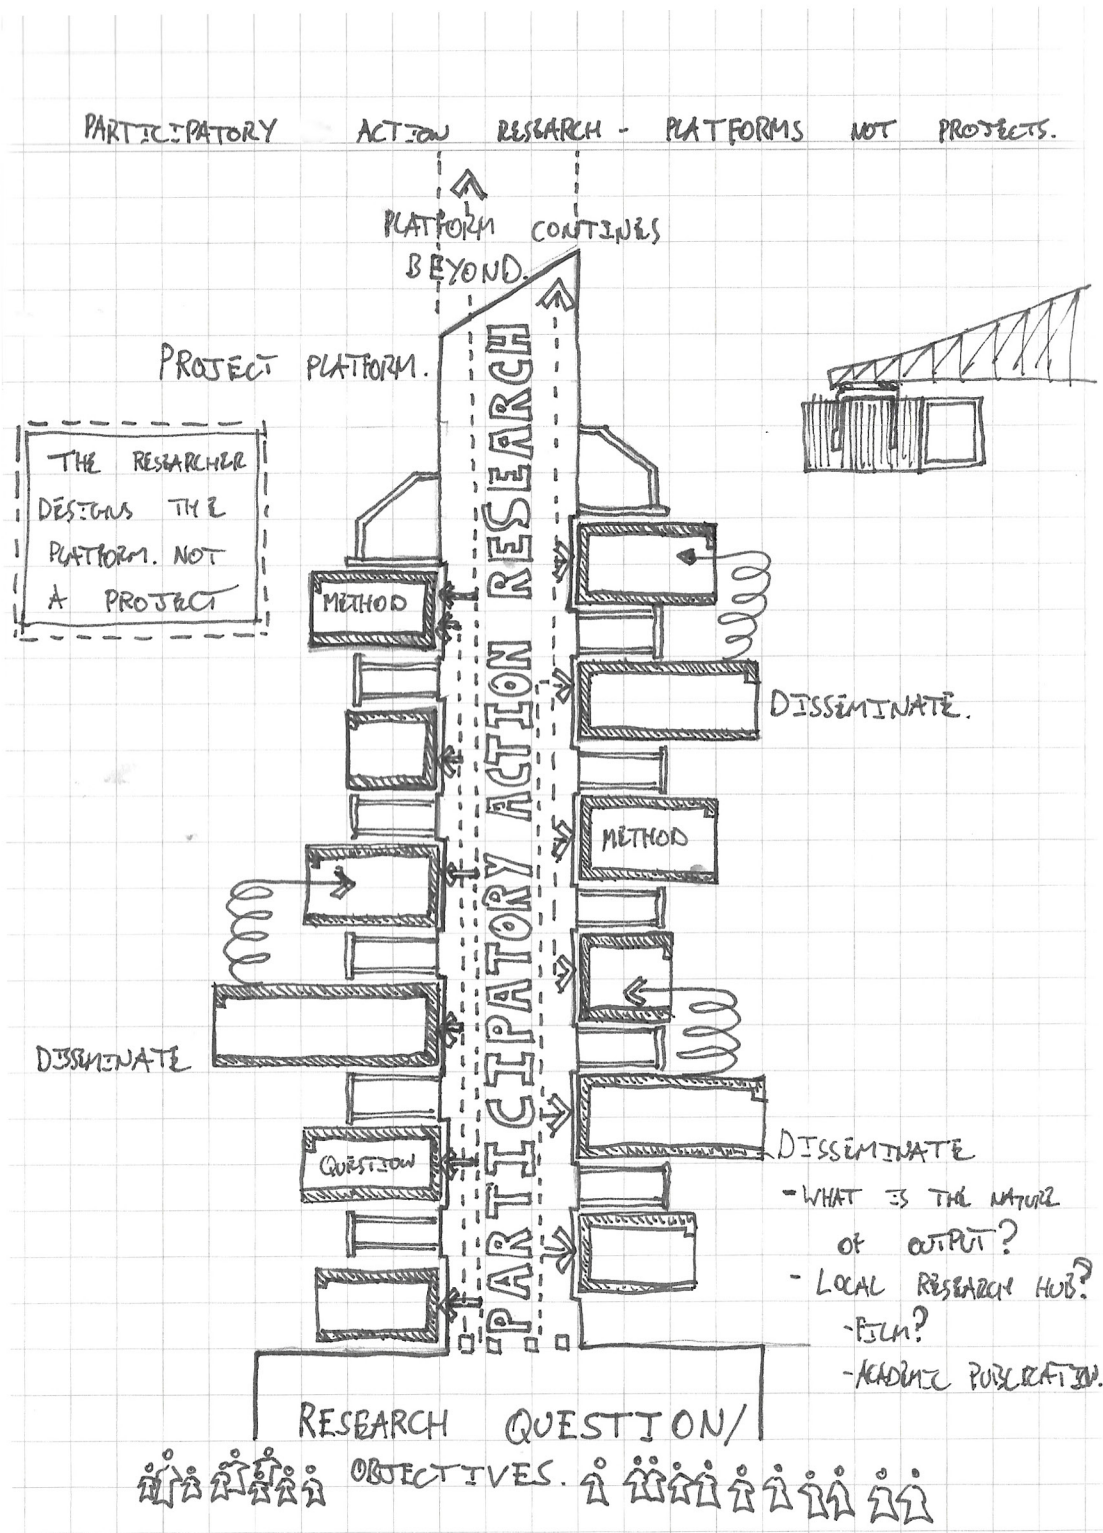 PARTICIPATORY ACTION RESEARCH - PLATFORMS NOT PROJECTS.
PLATFORM CONTINES
BEYOND.
PROJECT PLATFORM.
THE RESEARCHER
DESIGNS THE
PLATFORM. NOT
A PROJECT
PARTICIPATORY ACTION RESEARCH
METHOD
DISSEMINATE.
METHOD
DISSEMINATE
QUESTION
DISSEMINATE
- WHAT IS THE NATURE
OF OUTPUT?
- LOCAL RESEARCH HUB?
- FILM?
- ACADEMIC PUBLICATION.
RESEARCH QUESTION/
OBJECTIVES.